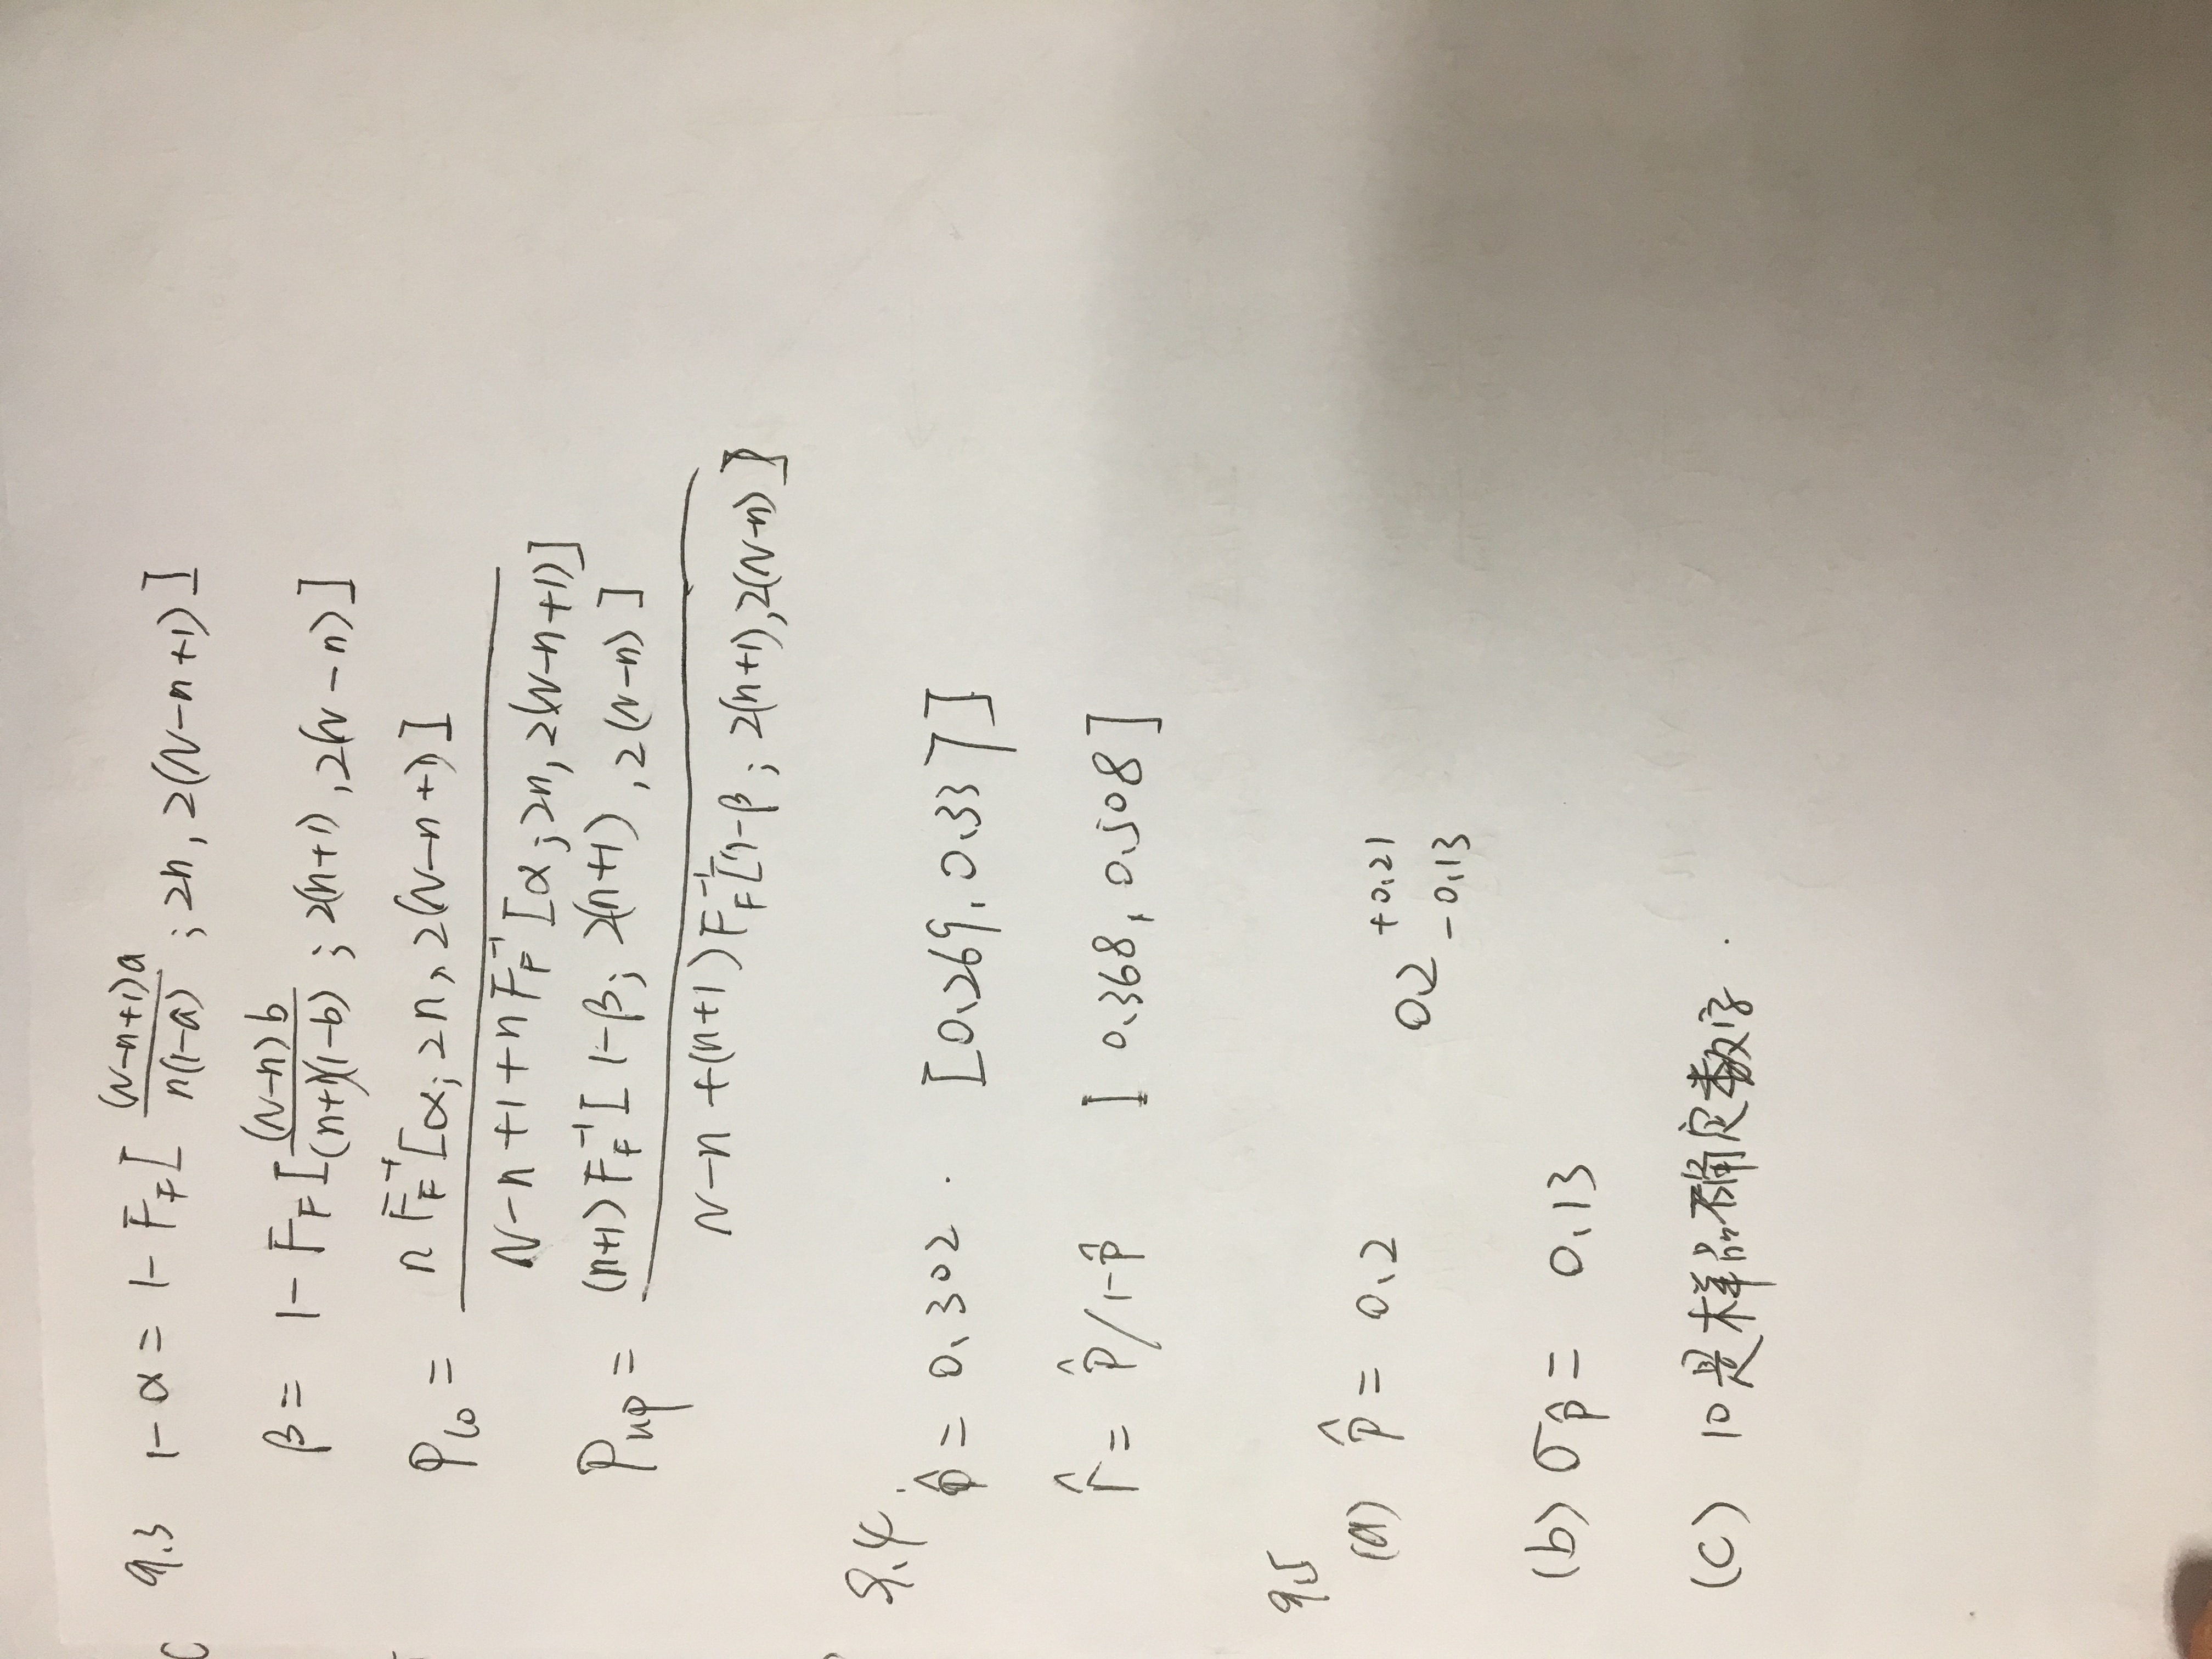 9.3 1-α = 1- F_F[ (N-n+1)a / n(1-a) ; 2n, 2(N-n+1)]
β = 1- F_F[ (N-n)b / (n+1)(1-b) ; 2(n+1), 2(N-n)]
P_lo = n F_F^-1[α; 2n, 2(N-n+1)] / N-n+1+n F_F^-1[α; 2n, 2(N-n+1)]
P_up = (n+1) F_F^-1[1-β; 2(n+1), 2(N-n)] / N-n+(n+1) F_F^-1[1-β; 2(n+1), 2(N-n)]
9.4.
p̂ = 0.302. [0.269, 0.337]
r̂ = p̂/1-p̂ [0.368, 0.508]
9.5
(a) p̂ = 0.2 0.2 +0.21 -0.13
(b) σp̂ = 0.13
(c) 10是样品确定数字.